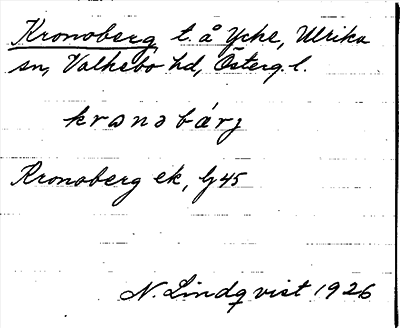 Kronoberg t. å Ycke, Ulrika
sn, Valkebo hd, Österg. l.
krɷnɷbárj
Kronoberg ek, Gj 45
N. Lindqvist 1926